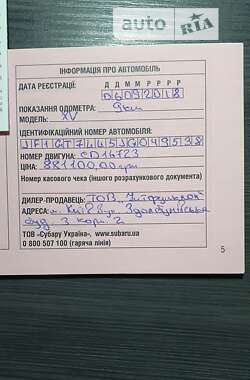 auto RIA
ІНФОРМАЦІЯ ПРО АВТОМОБІЛЬ
ДАТА РЕЄСТРАЦІЇ: Д Д М М Р Р Р Р
06092018
ПОКАЗАННЯ ОДОМЕТРА: 9км
МОДЕЛЬ: XV
ІДЕНТИФІКАЦІЙНИЙ НОМЕР АВТОМОБІЛЯ:
НОМЕР ДВИГУНА:
ЦІНА: 881100,00грн
Номер касового чека (іншого розрахункового документа)
ДИЛЕР-ПРОДАВЕЦЬ: ТОВ
АДРЕСА: м. Київ вул. Здолбунівська
буд. 3 корп. 2
ТОВ «Субару Україна», www.subaru.ua
0 800 507 100 (гаряча лінія)
5